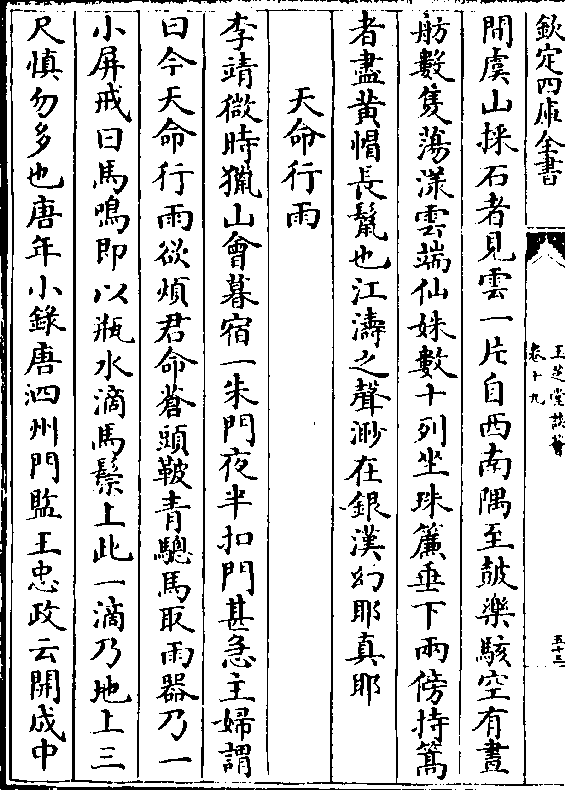 欽定四庫全書
玉芝堂談薈
卷十九
五十三
間虞山採石者見雲一片自西南隅至鼓樂駭空有畫
舫數隻蕩漾雲端仙姝數十列坐珠簾垂下兩傍持篙
者盡黄帽長鬣也江濤之聲渺在銀漢幻耶真耶
天命行雨
李靖微時獵山會暮宿一朱門夜半扣門甚急主婦謂
曰今天命行雨欲煩君命蒼頭鞁青驄馬取雨器乃一
小屏戒曰馬鳴即以瓶水滴馬鬃上此一滴乃地上三
尺慎勿多也唐年小錄唐泗州門監王忠政云開成中